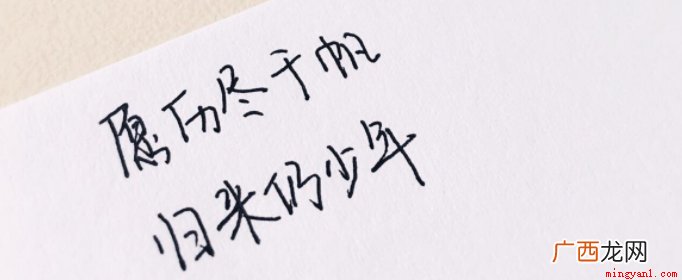 愿历尽千帆
归来仍少年
广西龙网
mingyan1.com